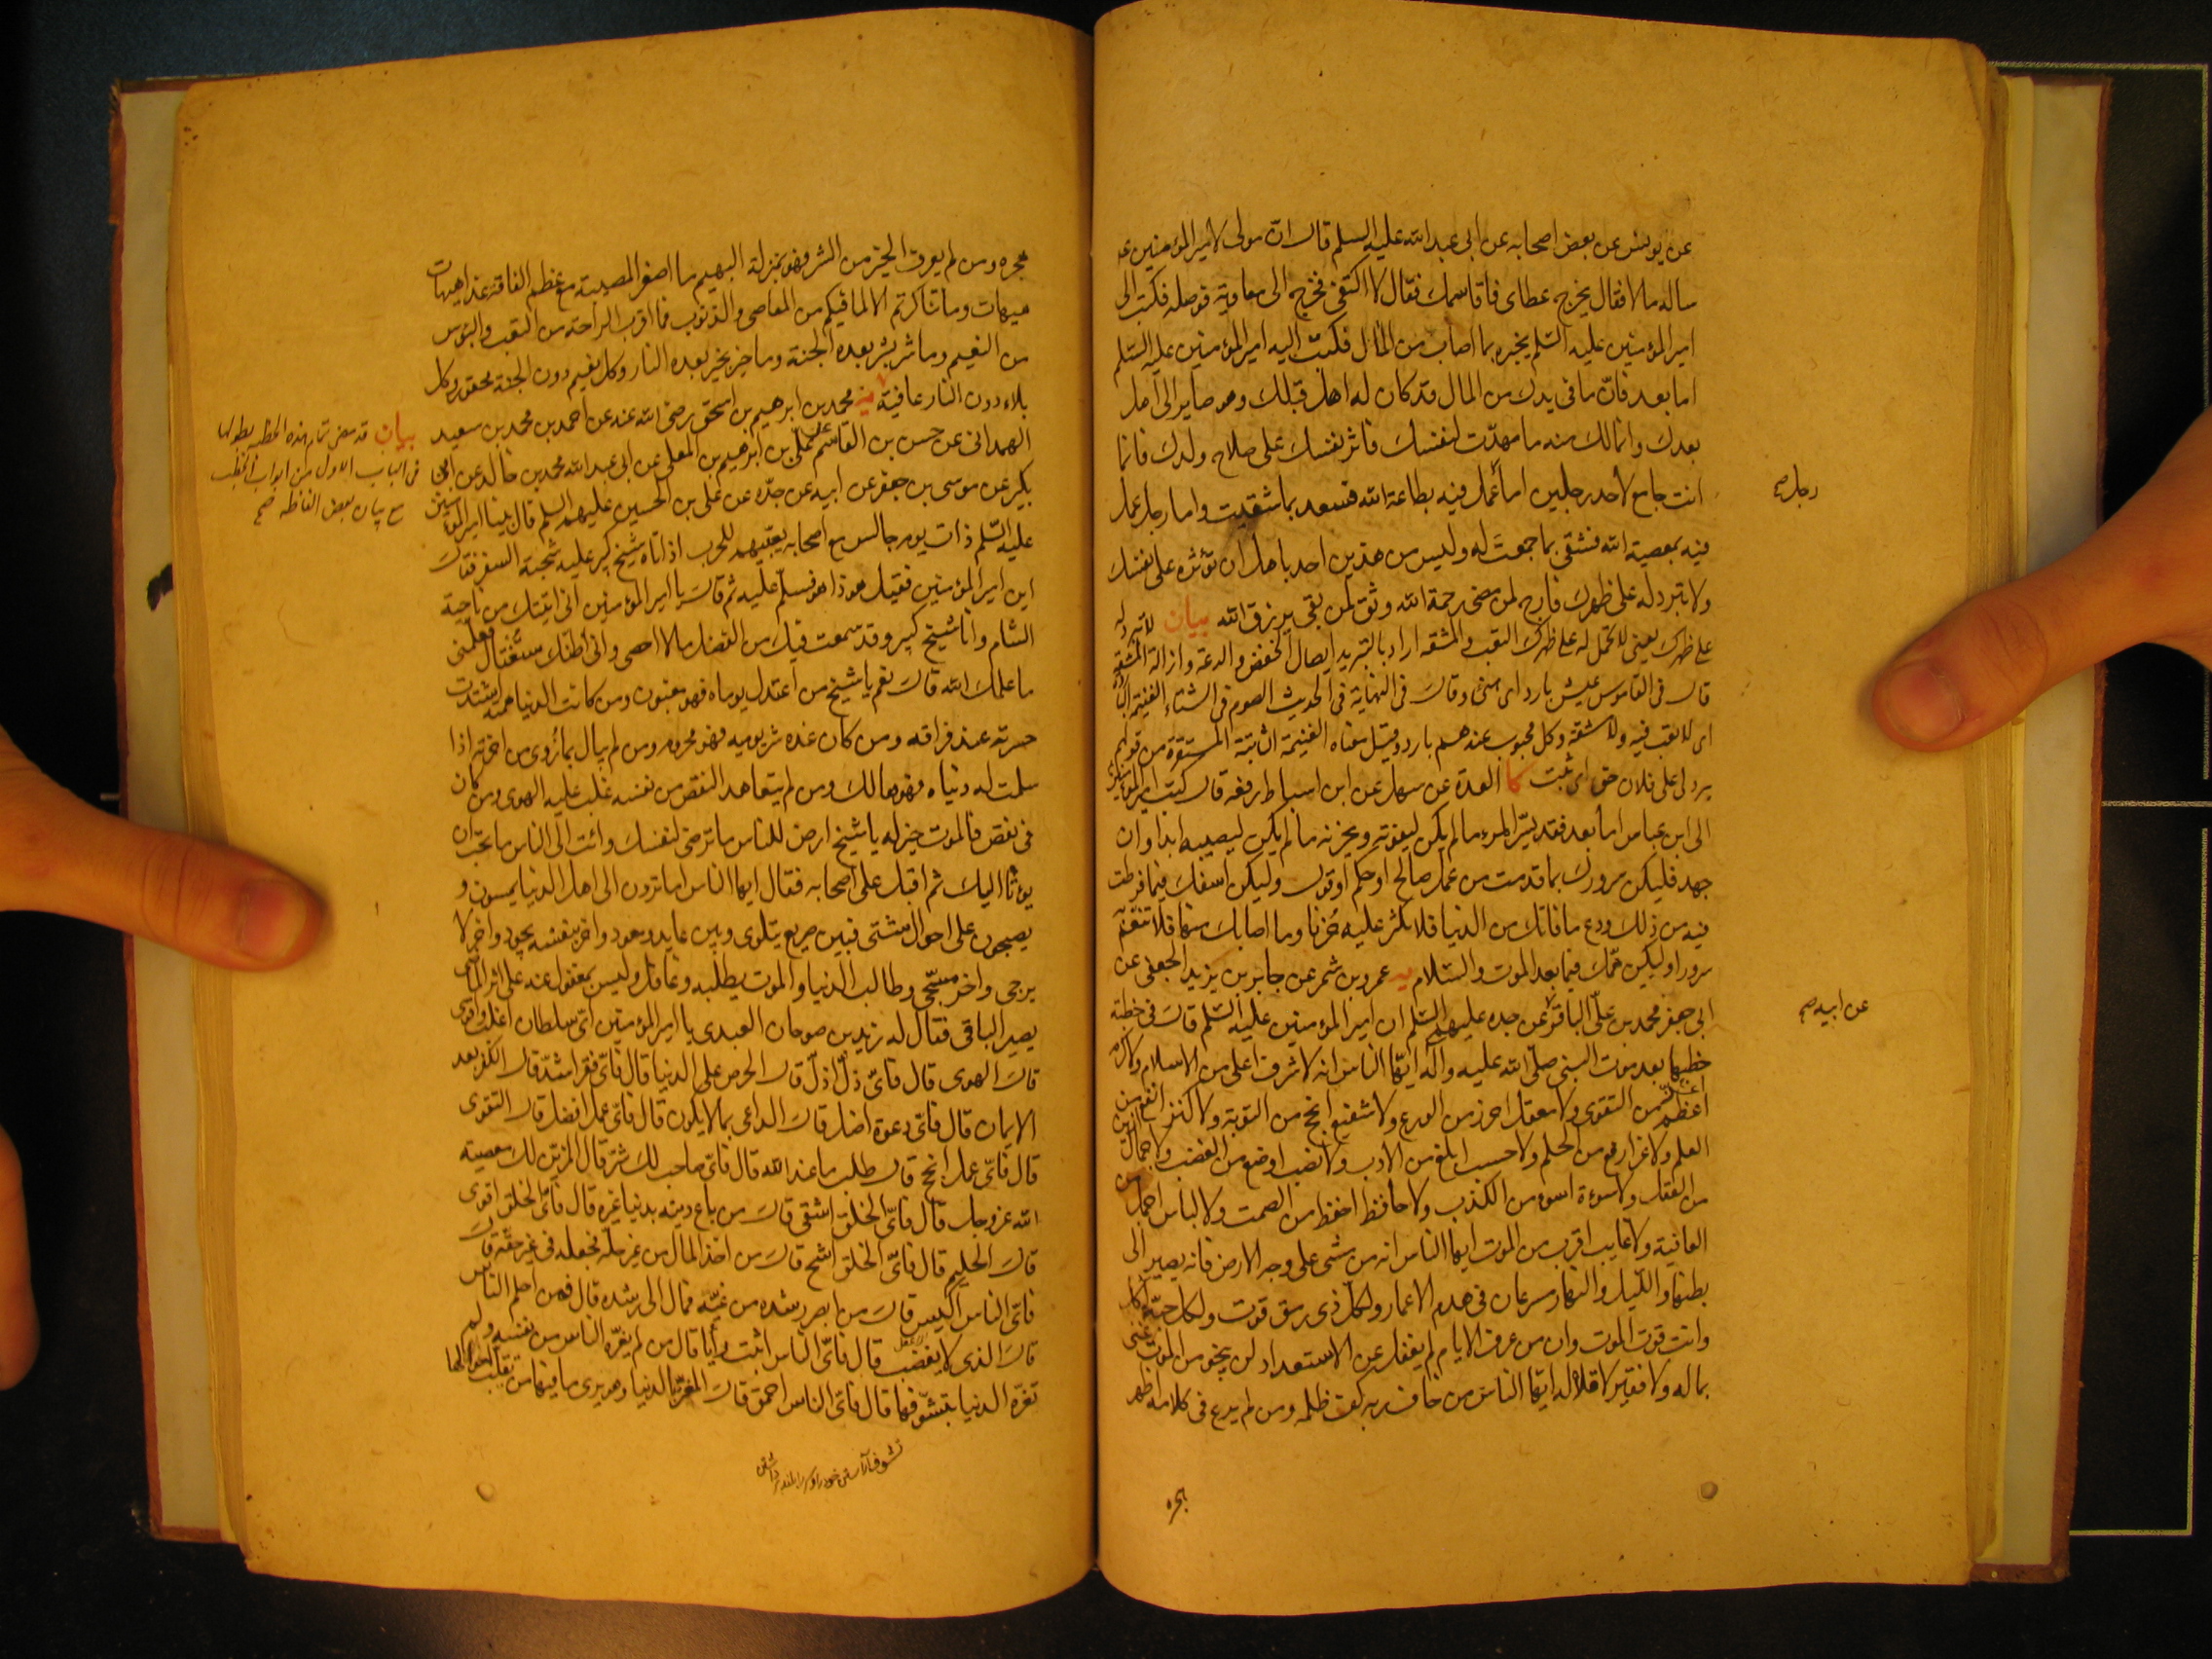 عن يونس عن بعض اصحابه عن ابى عبد الله عليه السلم قال ان مولى لامير المؤمنين ع
ساله مالا فقال يخرج عطاى فاقاسمك فقال لا اكتفى فخرج الى معاوية فوصله فكتب الى
امير المؤمنين عليه السلم يخبره بما اصاب من المال فكتب اليه امير المؤمنين عليه السلم
اما بعد فان ما فى يدك من المال قد كان له اهل قبلك وهو صاير الى اهل
بعدك وانما لك منه ما مهدت لنفسك فاثر نفسك على صلاح ولدك فانما
انت جامع لأحد رجلين اما عمل فيه بطاعة الله فسعد بما شقيت واما رجل عمل
رجل صح
فيه بمعصية الله فشقى بما جمعت له وليس من هذين احد باهل ان تؤثره على نفسك
ولا تبرد له على ظهرك فارج لمن مضى رحمة الله وثق لمن بقى برزق الله بيان لا تبرد له
على ظهرك يعنى لا تحمل له على ظهرك التعب والمشقه اراد بالتبريد ايصال الخفض والدعة وازالة المشقه
قال فى القاموس عيش بارد اى هنئ وقال فى النهاية فى الحديث الصوم فى الشتاء الغنيمة الباردة
اى لا تعب فيه ولا مشقة وكل محبوب عندهم بارد وقيل معناه الغنيمة الثابتة المستقرة من قولهم
برد لى على فلان حق اى ثبت كا العدة عن سهل عن ابن اسباط رفعه قال كتب امير المؤمنين
الى ابن عباس اما بعد فقد يسر المرء ما لم يكن ليفوته ويحزنه ما لم يكن ليصيبه ابدا وان
جهد فليكن سرورك بما قدمت من عمل صالح او حكم او قول وليكن اسفك فيما فرطت
فيه من ذلك ودع ما فاتك من الدنيا فلا تكثر عليه حزنا وما اصابك منها فلا تنعم به
سرورا وليكن همك فيما بعد الموت والسلام يه عمرو بن شمر عن جابر بن يزيد الجعفى عن
ابى جعفر محمد بن على الباقر عن جده عليهم السلم ان امير المؤمنين عليه السلم قال فى خطبة
عن ابيه صح
خطبها بعد موت النبى صلى الله عليه وآله ايها الناس انه لا شرف اعلى من الاسلام ولا كرم
اعز من التقوى ولا معقل احرز من الورع ولا شفيع انجح من التوبة ولا كنز انفع من
العلم ولا عز ارفع من الحلم ولا حسب ابلغ من الادب ولا نصب اوضع من الغضب ولا جمال ازين
من العقل ولا سوءة اسوء من الكذب ولا حافظ احفظ من الصمت ولا لباس اجمل من
العافية ولا غايب اقرب من الموت ايها الناس انه من مشى على وجه الارض فانه يصير الى
بطنها والليل والنهار مسرعان فى هدم الاعمار ولكل ذى رمق قوت ولكل حبة آكل
وانت قوت الموت وان من عرف الايام لم يغفل عن الاستعداد لن ينجو من الموت غنى
بماله ولا فقير لاقلاله ايها الناس من خاف ربه كف ظلمه ومن لم يرع فى كلامه اظهر
هجره
هجره ومن لم يعرف الخير من الشر فهو بمنزلة البهيم ما اصغر المصيبة مع عظم الفاقة غدا هيهات
هيهات وما تناكرتم الا لما فيكم من المعاصى والذنوب فما اقرب الراحة من التعب والبؤس
من النعيم وما شر بشر بعده الجنة وما خير بخير بعده النار وكل نعيم دون الجنة محقور وكل
بلاء دون النار عافية محمد بن ابرهيم بن اسحق رضى الله عنه عن احمد بن محمد بن سعيد
بيان قد مضى تمام هذه الخطبه بطولها
فى الباب الاول من ابواب الخطب
مع بيان بعض الفاظه صح
الهمدانى عن حسن بن القاسم عن على بن ابرهيم بن المعلى عن ابى عبد الله محمد بن خالد عن
بكير عن موسى بن جعفر عن ابيه عن جده عن على بن الحسين عليهم السلم قال بينا امير المؤمنين
عليه السلم ذات يوم جالس مع اصحابه يعبيهم للحرب اذ اتاه شيخ كبير عليه شحبة السفر فقال
اين امير المؤمنين فقيل هو ذا هو فسلم عليه ثم قال يا امير المؤمنين انى اتيتك من ناحية
الشام وانا شيخ كبير وقد سمعت فيك من الفضل ما لا احصى وانى اظنك ستغتال فعلمنى
ما علمك الله قال نعم يا شيخ من اعتدل يوماه فهو مغبون ومن كانت الدنيا همته اشتدت
حسرته عند فراقه ومن كان غده شر يوميه فهو محروم ومن لم يبال بما زوى من اخرته اذا
سلمت له دنياه فهو هالك ومن لم يتعاهد النقص من نفسه غلب عليه الهوى ومن كان
فى نقص فالموت خير له يا شيخ ارض للناس ما ترضى لنفسك وائت الى الناس ما تحب ان
يؤتى اليك ثم اقبل على اصحابه فقال ايها الناس اما ترون الى اهل الدنيا يمسون و
يصبحون على احوال شتى فبين صريع يتلوى وبين عايد ومعود واخر بنفسه يجود واخر لا
يرجى واخر مسجى وطالب الدنيا والموت يطلبه وغافل وليس بمغفول عنه على اثر الماضى
يصير الباقى فقال له زيد بن صوحان العبدى يا امير المؤمنين اى سلطان اغلب واقوى
قال الهوى قال فاى ذل اذل قال الحرص على الدنيا قال فاى فقر اشد قال الكفر بعد
الايمان قال فاى دعوة اضل قال الداعى بما لا يكون قال فاى عمل افضل قال التقوى
قال فاى عمل انجح قال طلب ما عند الله قال فاى صاحب لك شر قال المزين لك معصية
الله عز وجل قال فاى الخلق اشقى قال من باع دينه بدنيا غيره قال فاى الخلق اقوى
قال الحليم قال فاى الخلق اشح قال من اخذ المال من غير حله فجعله فى غير حقه قال
فاى الناس اكيس قال من ابصر رشده من غيه فمال الى رشده قال فمن احلم الناس
قال الذى لا يغضب قال فاى الناس اثبت رأيا قال من لم يغره الناس من نفسه ولم
تغره الدنيا بتشوفها قال فاى الناس احمق قال المغتر بالدنيا وهو يرى ما فيها من تقلب احوالها